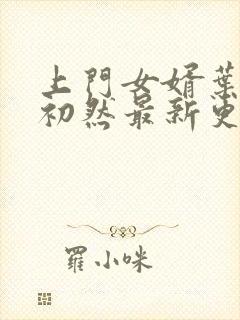 上門女婿葉
初然最新更
羅小咪